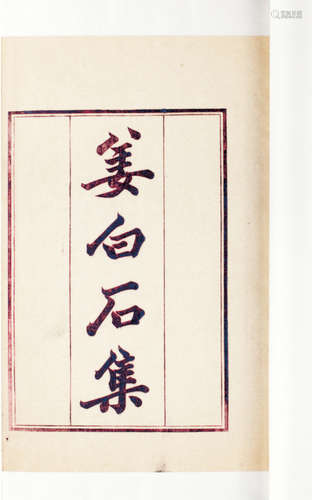 姜白石集